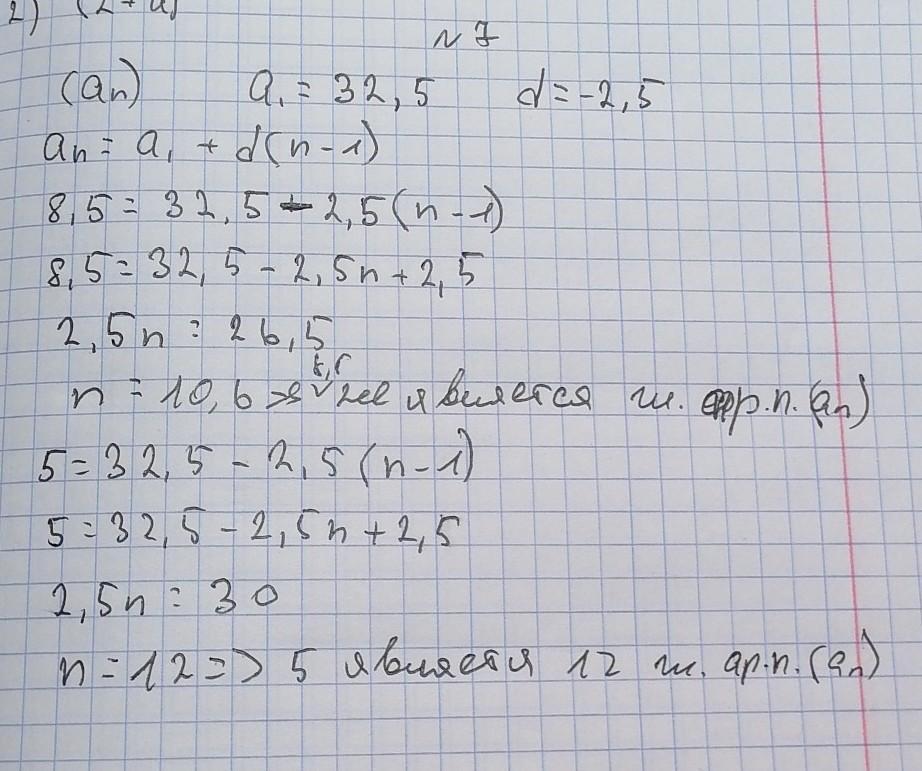 2) (2 + a)
№ 7
(aₙ) a₁ = 32,5 d = -2,5
aₙ = a₁ + d(n-1)
8,5 = 32,5 - 2,5(n-1)
8,5 = 32,5 - 2,5n + 2,5
2,5n = 26,5
n = 10,6 => 8,5 не является чл. ар.п. (aₙ)
5 = 32,5 - 2,5(n-1)
5 = 32,5 - 2,5n + 2,5
2,5n = 30
n = 12 => 5 является 12 чл. ар.п. (aₙ)